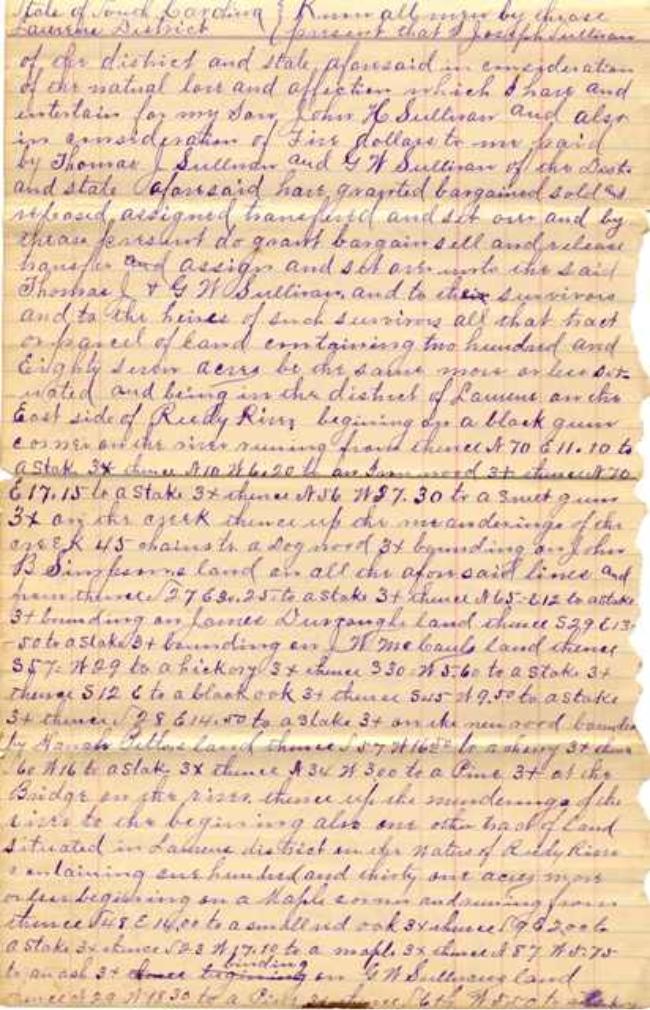 State of South Carolina } Know all men by these
Laurens District { present that I Joseph Sullivan
of the district and state aforesaid in consideration
of the natural love and affection which I have and
entertain for my Son John H Sullivan and also
in consideration of Five dollars to me paid
by Thomas J Sullivan and G W Sullivan of the Dist
and state aforesaid have granted bargained sold &
released, assigned transferred and set over and by
these present do grant bargain sell and release
transfer and assign and set over unto the said
Thomas J & G W Sullivan and to their survivors
and to the heires of such survivors all that tract
or parcel of land containing two hundred and
Eighty seven acres be the same more or less sit-
uated and being in the district of Laurens on the
East side of Reedy River begining on a black gum
corner on the river runing from thence N 70 E 11.10 to
a Stak 3x thence N 10 W 6.20 to an Iron wood 3+ thence N 70
E 17.15 to a Stake 3x thence N 56 W 27.30 to a Sweet gum
3x on the creek thence up the meanderings of the
creek 45 chains to a Dogwood 3+ bounding on John
B Simpsons land on all the afore said lines and
from thence S 27 E 30.25 to a stake 3+ thence N 65 E 12 to a stake
3+ bounding on James land thence S 29 E 13
-50 to a stake 3+ bounding on J W land thence
S 57 W 29 to a hickory 3x thence S 30 W 5.60 to a stake 3+
thence S 12 E to a black ook 3+ thence S 45 W 9.50 to a stake
3+ thence S 28 E 14.50 to a stake 3+ on the new rood bounded
by land thence S 57 W 16 to a cherry 3+ thence
S 60 W 16 to a stake 3x thence N 34 W 300 to a Pine 3+ at the
Bridge on the river, thence up the meanderings of the
river to the beginning also one other tract of land
situated in Laurens district on the waters of Reedy River
containing one hundred and thirty one acres more
or less beginning on a Maple corner and runing from
thence S 48 E 14.00 to a small red ook 3x thence S 9 E 2.00 to
a stake 3x thence S 23 W 17.10 to a maple 3x thence N 87 W 5.75
to an ash 3+ binding on G W Sullivans land
thence N 29 W 18.30 to a Pine thence S 64 W 5.50 to a